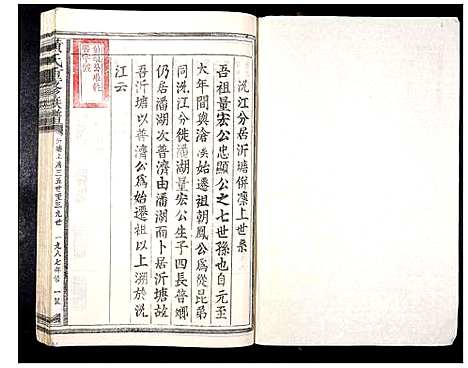 沇江分居沂塘併凜上世系
吾祖量宏公忠顯公之七世孫也自元至
大年間與滄溪始遷祖朝鳳公為從昆弟
同沇江分徙潘湖量宏公生子四長晉卿
仍居潘湖次普濟由潘湖而卜居沂塘故
吾沂塘以普濟公為始遷祖以上溯於沇
江云
黃氏重修族譜
沂塘上房三五世至三九世
一九八七年